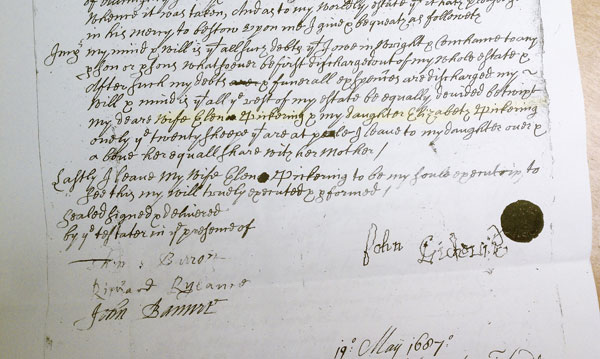 whome it was taken, And as to my worldly estate yt it hath pleased
in his mercy to bestow upon me I give & bequeath as followeth
my mind & will is yt all such debts yt I owe in wright & Conchance to any
pson or psons whatsoever be first discharged out of my whole estate &
After such my debts & funerall expences are discharged my
will & mind is yt all ye rest of my estate be equally devided betwixt
my deare wife Elen Pickering & my daughter Elizabeth Pickering
onely ye twenty sheepe yt are at I leave to my daughter over &
above her equall share with her Mother /
Lastly I leave my wife Elen Pickering to be my soule executrix to
see this my will truely executed & pformed /
Sealed signed & delivered
by ye testater in ye presence of
John Pickering
Barron
Richard
John
19o May 1687o